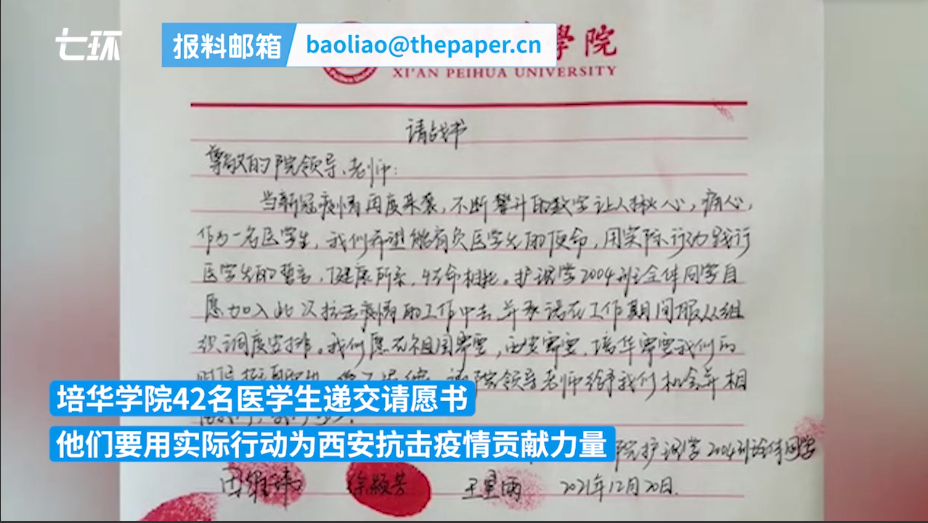 七环
报料邮箱 baoliao@thepaper.cn
學院
XI'AN PEIHUA UNIVERSITY
请战书
尊敬的院领导、老师：
当新冠疫情再度来袭，不断攀升的数字让人揪心，痛心，
作为一名医学生，我们希望能肩负医学生的使命，用实际行动践行
医学生的誓言，健康所系，性命相托。护理学2004班全体同学自
愿加入此次抗击疫情的工作中去，并承诺在工作期间服从组
织调度安排。我们愿在祖国需要，西安需要，培华需要我们的
院领导老师给予我们机会并相
培华学院42名医学生递交请愿书
他们要用实际行动为西安抗击疫情贡献力量
院护理学2004班全体同学
徐颖芳 王星雨 2021年12月20日.